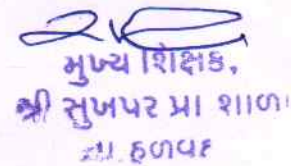 મુખ્ય શિક્ષક,
શ્રી સુખપર પ્રા શાળા
તા હળવદ